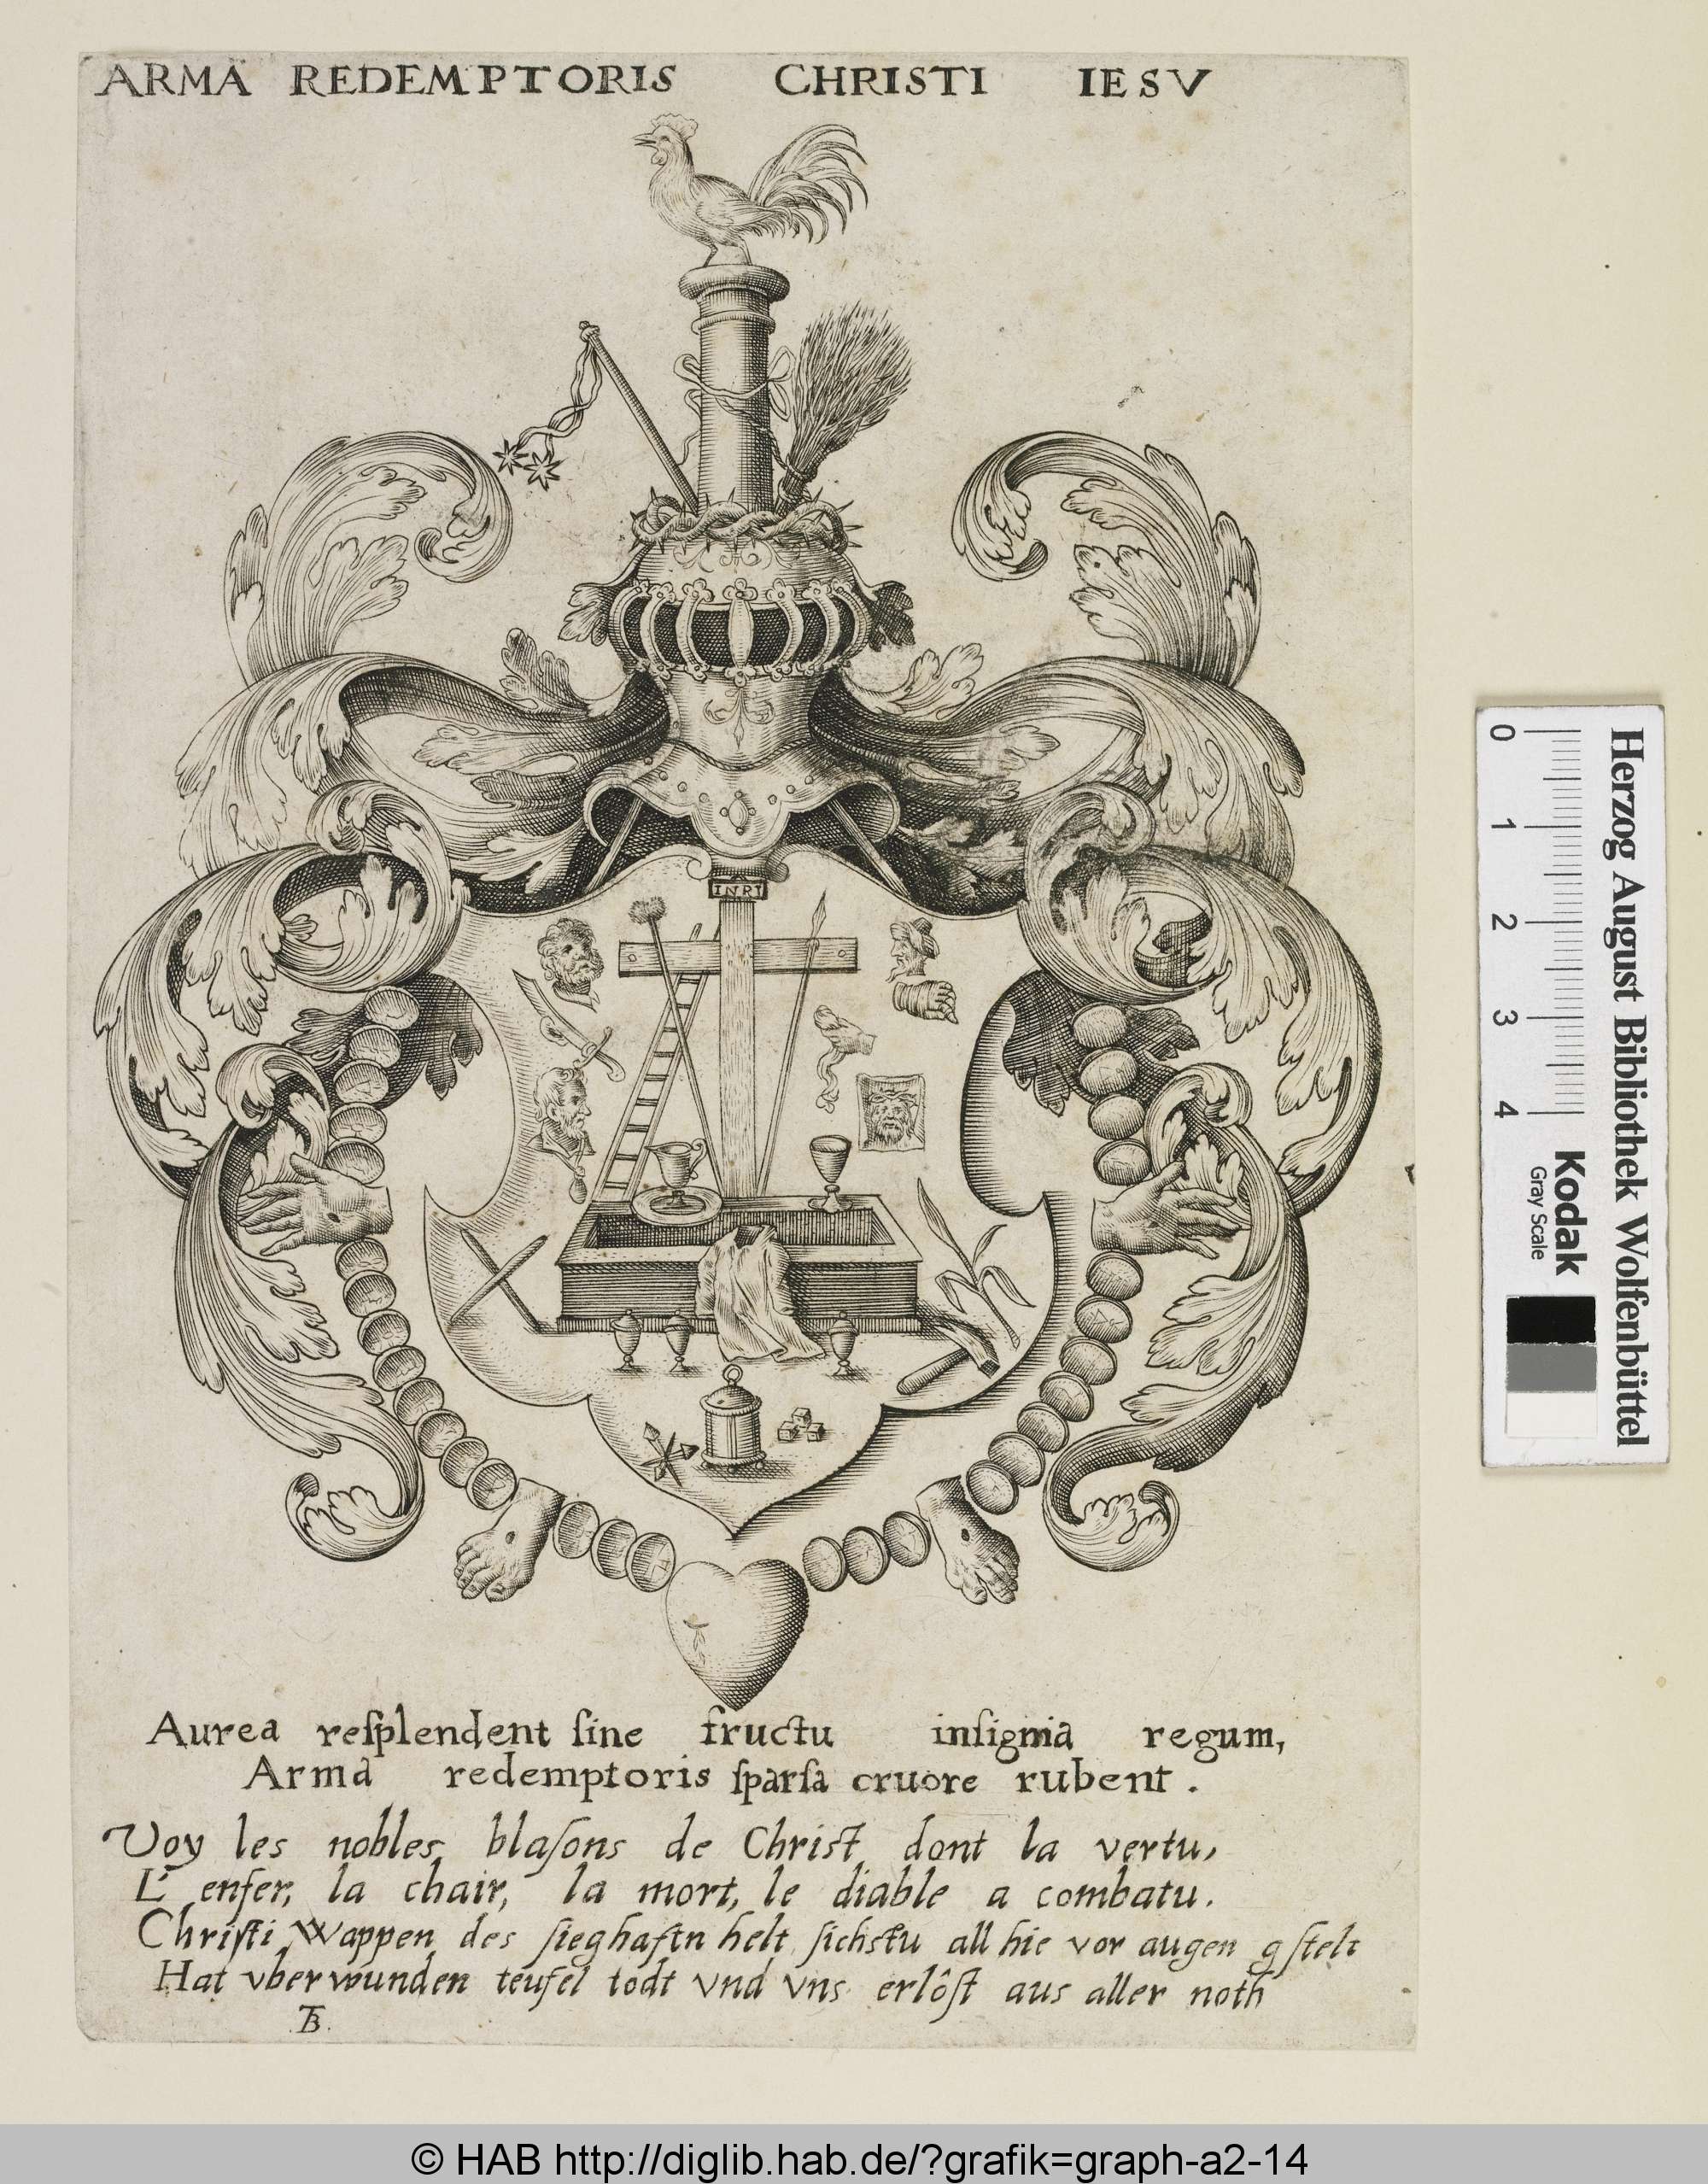 ARMA REDEMPTORIS CHRISTI IESV
INRI
Aurea reſplendent ſine fructu inſignia regum,
Arma redemptoris ſparſa cruore rubent.
Voy les nobles blaſons de Christ dont la vertu,
L'enfer, la chair, la mort, le diable a combatu.
Chriſti Wappen des ſieghaftn helt ſichſtu all hie vor augen gſtelt
Hat vberwunden teufel todt vnd vns erlôſt aus aller noth
TB.
Herzog August Bibliothek Wolfenbüttel
0 1 2 3 4
Kodak
Gray Scale
© HAB http://diglib.hab.de/?grafik=graph-a2-14